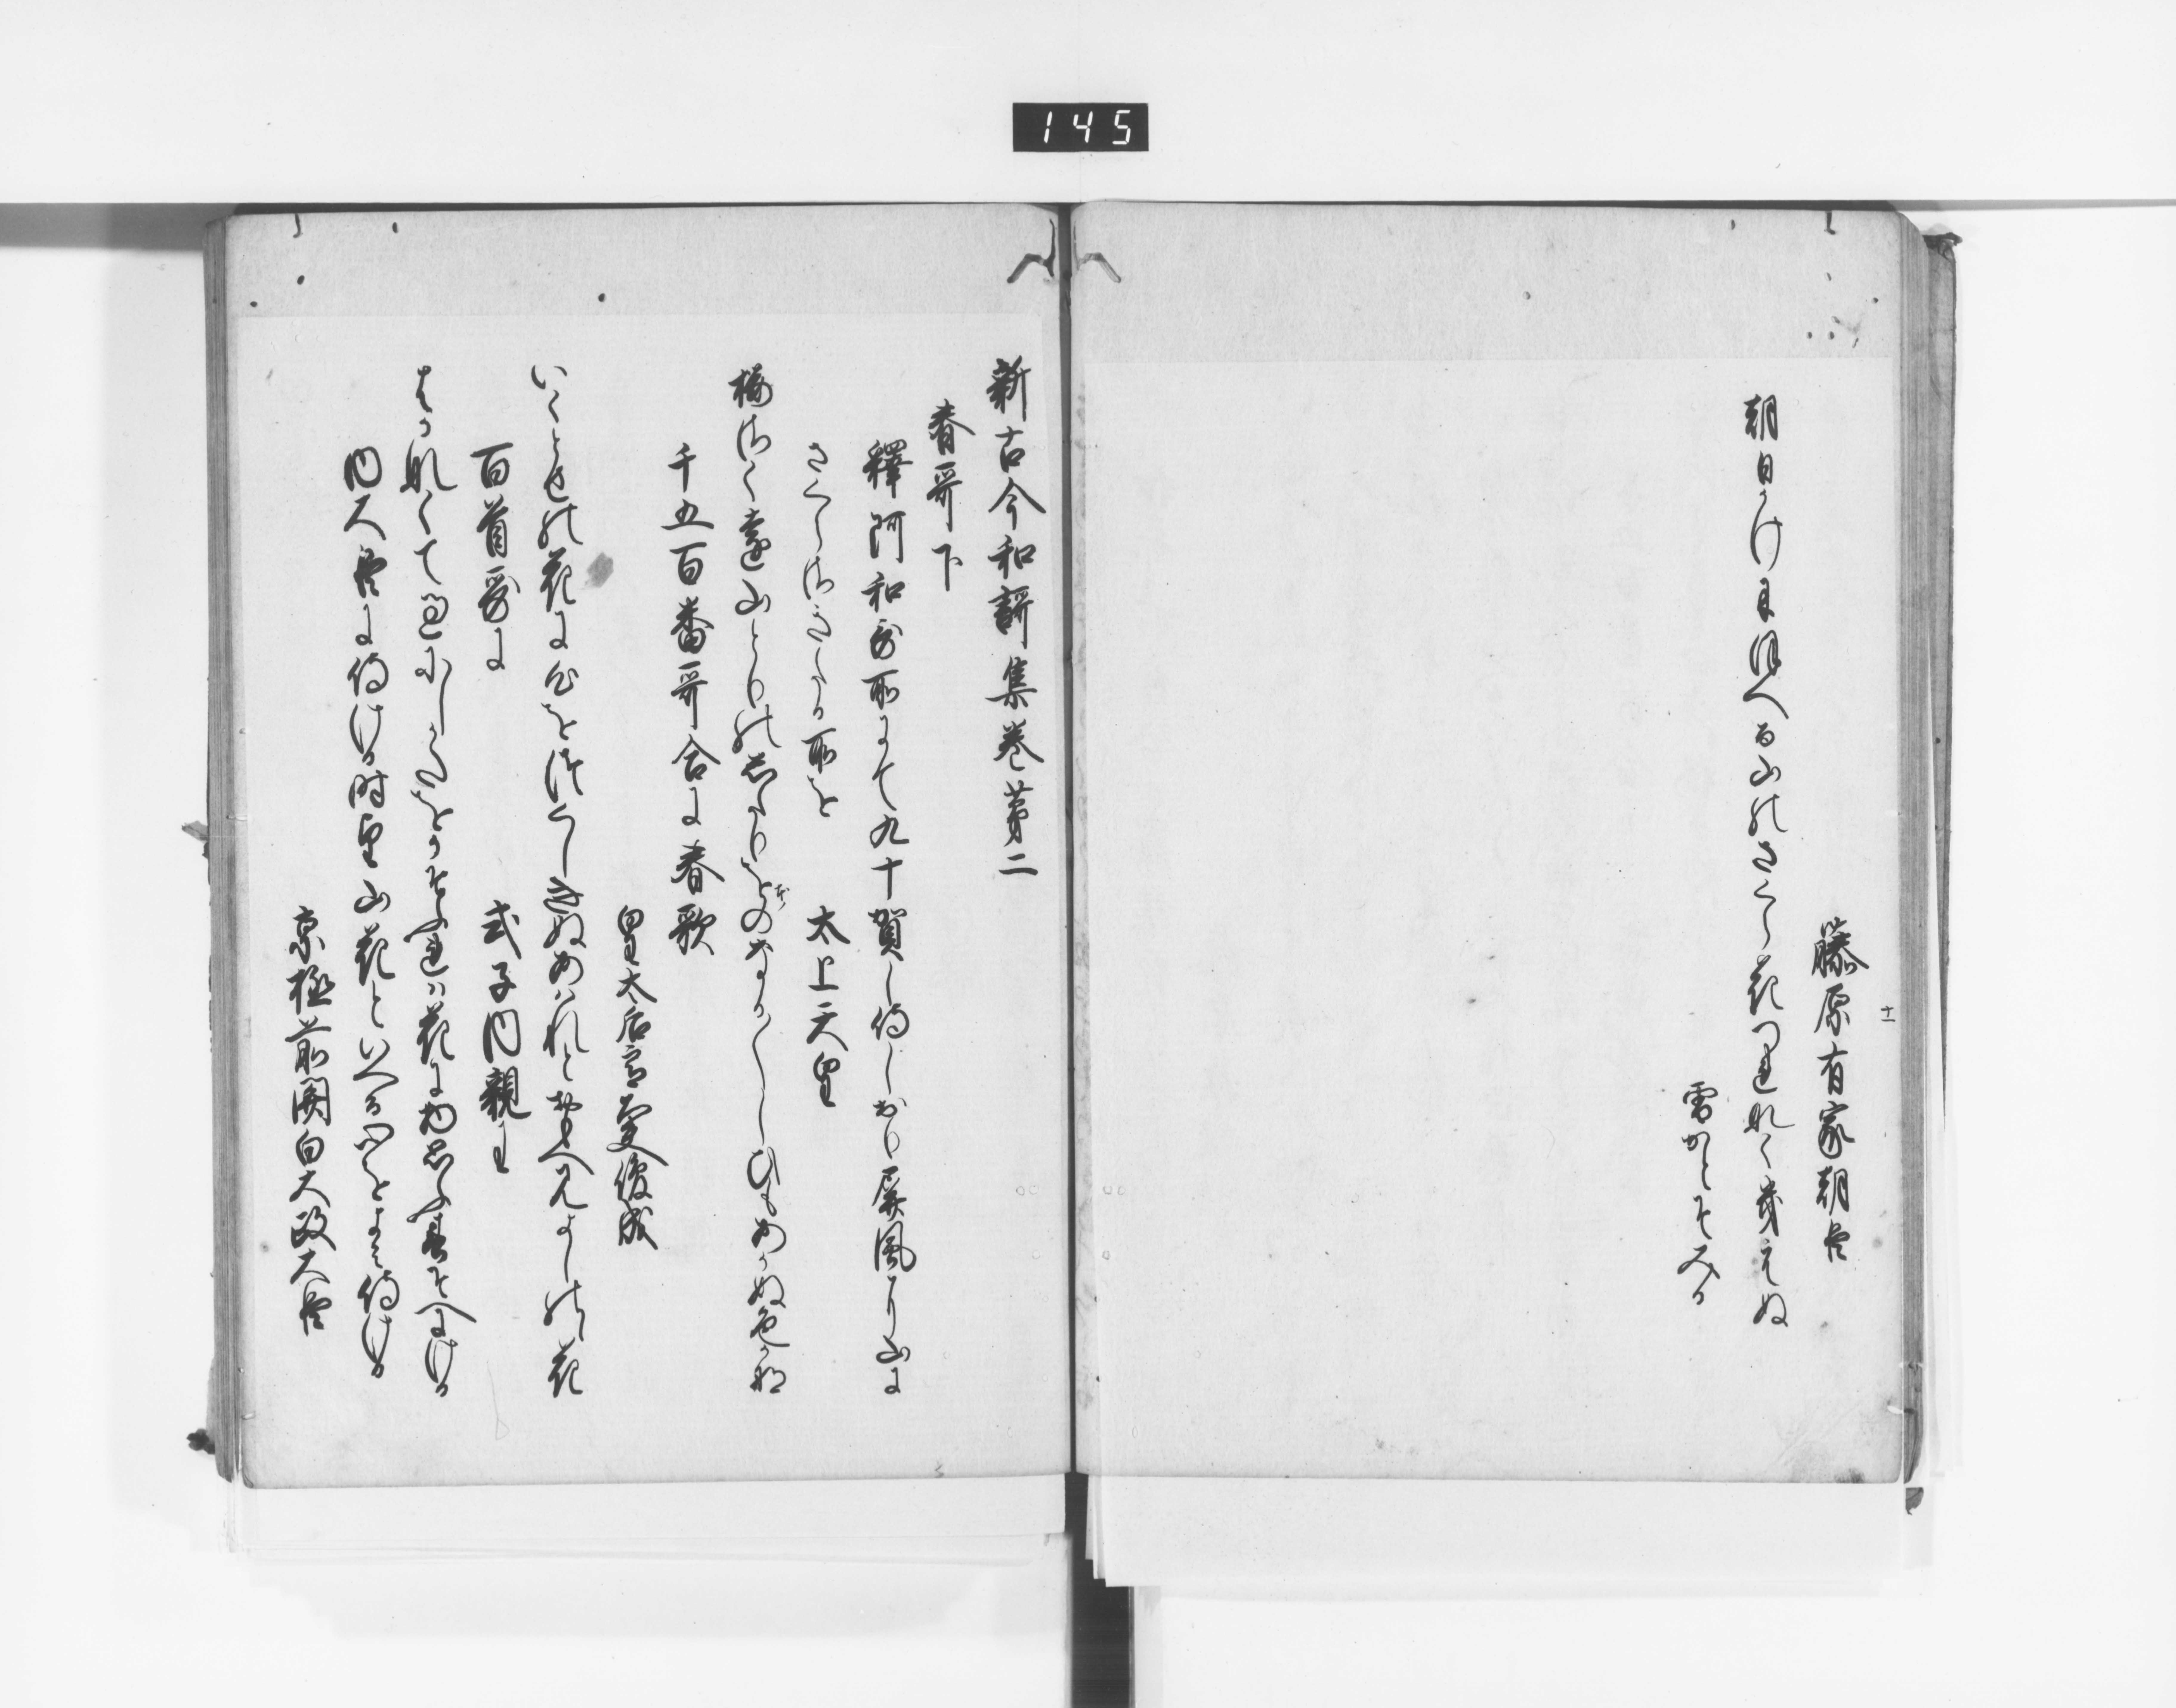 145
十一
藤原有家朝臣
朝日かけにほへる山のさくら花つれなくきえぬ
雪かとそみる
新古今和謌集巻第二
春哥下
釋阿和哥所にて九十賀し侍しおり屏風に山に
さくらさきたる所を
太上天皇
桜さく遠山とりのしたりをのなか〱しひもあかぬ色かな
千五百番哥合に春歌
皇太后宮大夫俊成
いくとせの花に心をつくしきぬあはれとおもへみよしのゝ花
百首哥に
式子内親王
はかなくて過にしかたをかそふれは花に物思ふ春そへにける
内大臣に侍ける時望山花といへる心をよみ侍ける
京極前関白太政大臣